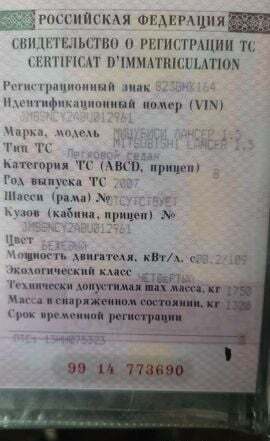 РОССИЙСКАЯ ФЕДЕРАЦИЯ
СВИДЕТЕЛЬСТВО О РЕГИСТРАЦИИ ТС
CERTIFICAT D'IMMATRICULATION
Регистрационный знак
Идентификационный номер (VIN)
JMBSNCY2A8U012961
Марка, модель МИЦУБИСИ ЛАНСЕР 1.5
MITSUBISHI LANCER 1.5
Тип ТС Легковой седан
Категория ТС (ABCD, прицеп) B
Год выпуска ТС 2007
Шасси (рама) № ОТСУТСТВУЕТ
Кузов (кабина, прицеп) №
JMBSNCY2A8U012961
Цвет БЕЖЕВЫЙ
Мощность двигателя, кВт/л. с. 80.2/109
Экологический класс ЧЕТВЕРТЫЙ
Технически допустимая max масса, кг 1750
Масса в снаряженном состоянии, кг 1320
Срок временной регистрации
99 14 773690